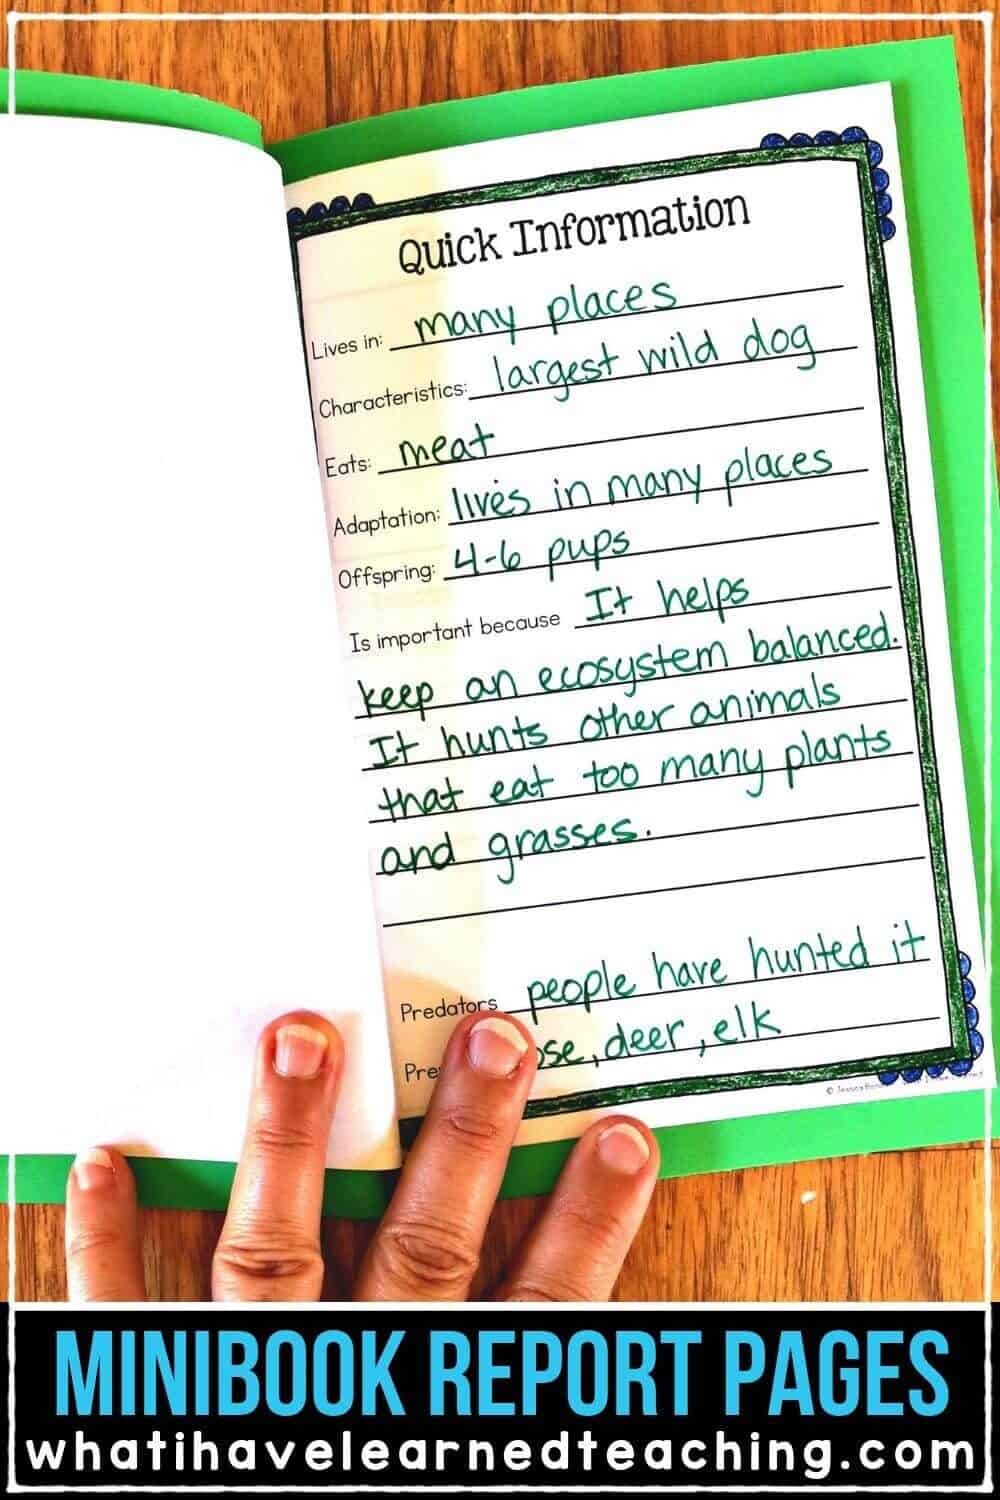 Quick Information
Lives in: many places
Characteristics: largest wild dog
Eats: meat
Adaptation: lives in many places
Offspring: 4-6 pups
Is important because It helps
keep an ecosystem balanced.
It hunts other animals
that eat too many plants
and grasses.
Predators people have hunted it
deer, elk
©
MINIBOOK REPORT PAGES
whatihavelearnedteaching.com